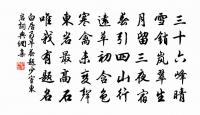 三十六峰晴
雪銷嵐翠生
月留三夜宿
春引四山行
遠草初含色
寒禽未變聲
東岩最高石
唯我有題名
白居易早春題少室東
岩詞典網集